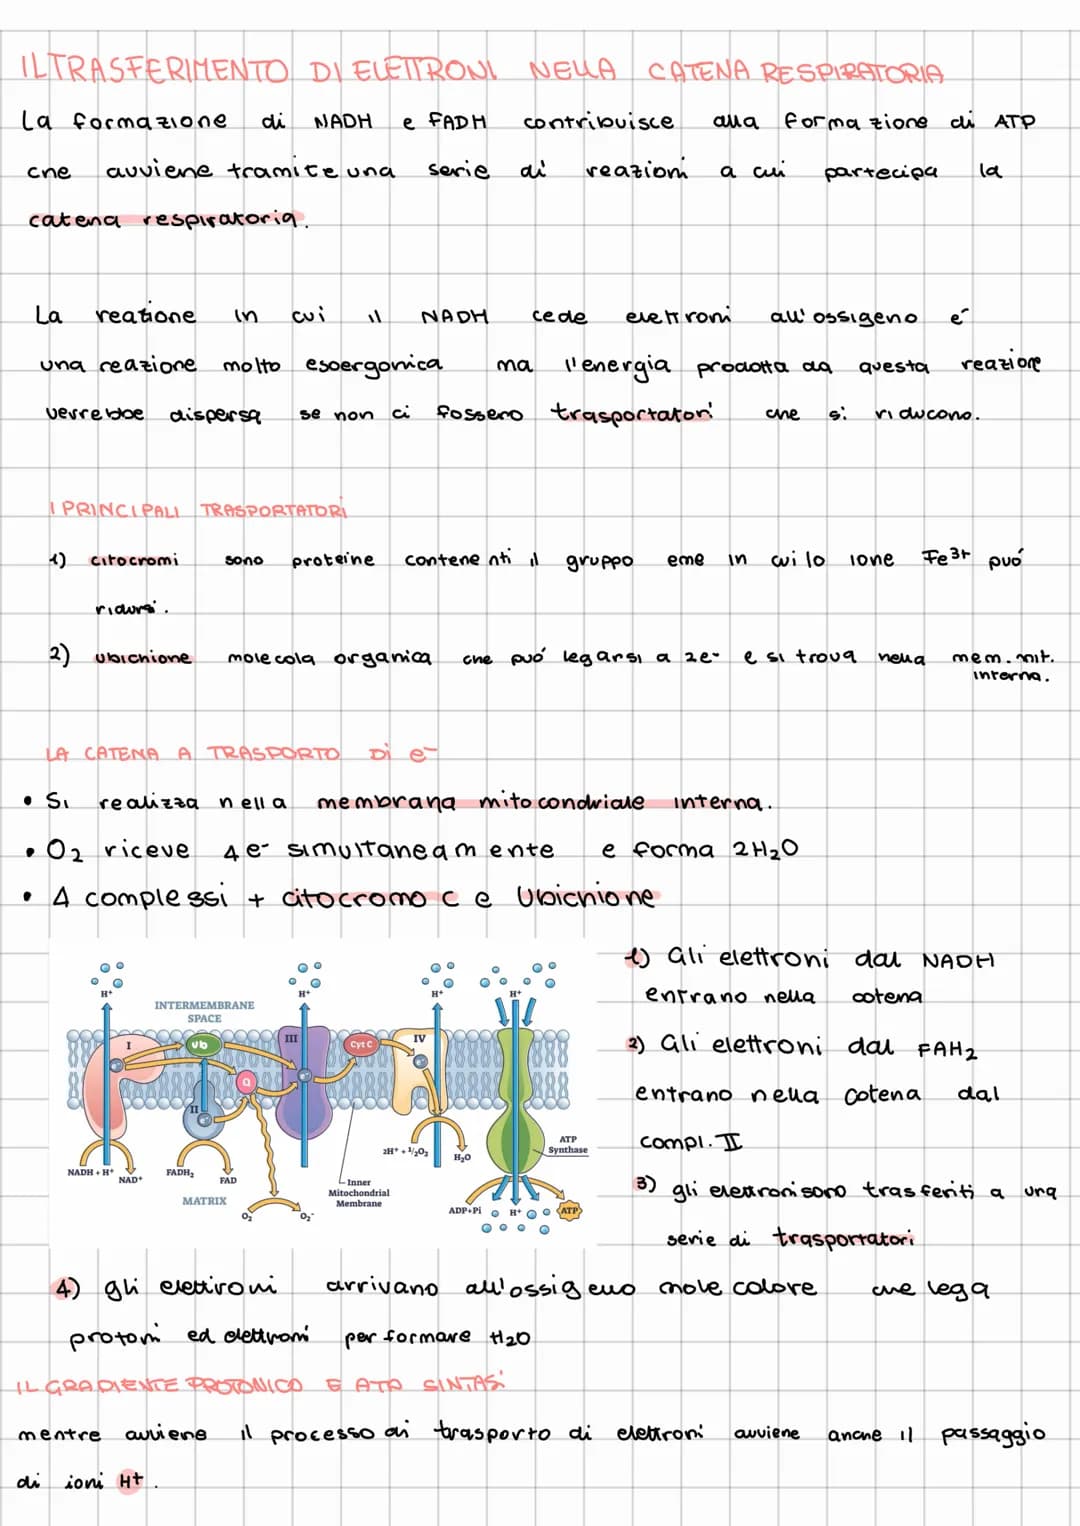 IL TRASFERIMENTO DI ELETTRONI NELLA CATENA RESPIRATORIA
La formazione di NADH e FADH contribuisce alla formazione di ATP
che avviene tramite una serie di reazioni a cui partecipa la
catena respiratoria.
La reazione in cui il NADH cede elettroni all'ossigeno é
una reazione molto esoergonica ma l'energia prodotta da questa reazione
verrebbe dispersa se non ci fossero trasportatori che si riducono.
I PRINCIPALI TRASPORTATORI
1) citocromi sono proteine contenenti il gruppo eme in cui lo ione Fe3+ puó
ridursi.
2) ubichione molecola organica che puó legarsi a 2e- e si trova nella mem. mit.
interna.
LA CATENA A TRASPORTO Di e-
• Si realizza nella membrana mitocondriale interna.
• O2 riceve 4e- simultaneamente e forma 2H2O
• 4 complessi + citocromo c e Ubichione
H+ H+ H+ H+
INTERMEMBRANE
SPACE
I Ub III Cyt C IV
e- Q e- e-
II e-
NADH + H+ NAD+ FADH2 FAD
MATRIX
O2 O2-
Inner
Mitochondrial
Membrane
2H+ + 1/2O2 H2O
ATP
Synthase
ADP+Pi H+ ATP
1) Gli elettroni dal NADH
entrano nella catena
2) Gli elettroni dal FAH2
entrano nella catena dal
compl. II
3) gli elettroni sono trasferiti a una
serie di trasportatori
4) gli elettroni arrivano all'ossigeno molecolare che lega
protoni ed elettroni per formare H2O
IL GRADIENTE PROTONICO E ATP SINTASI
mentre avviene il processo di trasporto di elettroni avviene anche il passaggio
di ioni H+.